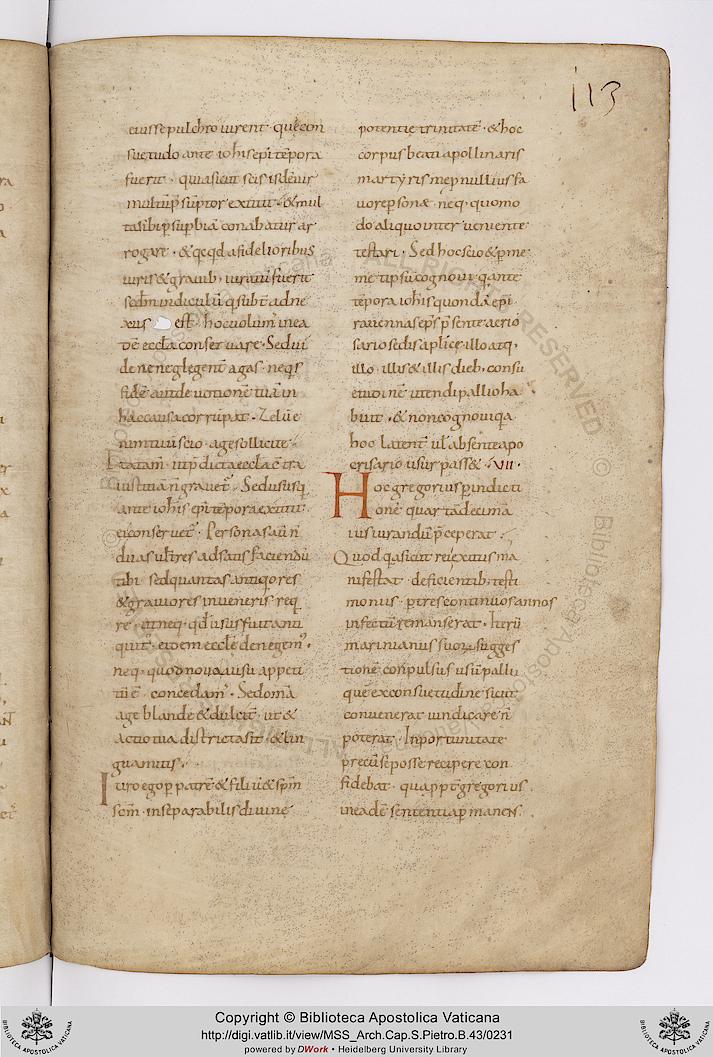 113
eiussepulchro iurent · que con
suetudo ante iohīs epī tēpora
fuerit · quia sicut scis isdē uir
multū p̄sūptor extitit · & mul
ta sibi p̄ sup̄biā conabatur ar
rogare · & qcqd a fidelioribus
uiris & grauib; iuratū fuerit
est hoc uolum̄ in ea
dē eccl̄a conseruare · Sed ui
de ne neglegent̄ agas · neq;
fidē aut deuotionē tuā in
hac causa corrūpat · Zelū e
nim tuū scio · age sollicite ·
tractam̄ · ut p̄dicta eccl̄a c̄tra
iustitiā n̄ grauet̄ · Sed usus q
ante iohīs epī tēpora extitit
ei conseruet̄ · Personas aū n̄
duas ul̄ tres ad satisfaciendū
tibi · sed quantas antiqores
& grauiores inueneris req
re · ut neq · qd̄ usus fuit anti
quit̄ · eidem eccl̄e denegem̄ ·
neq · quod nouo ausu appeti
tū ē · concedam̄ · Sed om̄ia
age blande & dulcit̄ · ut &
actio tua districta sit · & lin
gua mitis ·
Iuro ego p patrē & filiū & sp̄m
sc̄m · inseparabilis diuine
potentie trinitatē · & hoc
corpus beati apollinaris
martyris me p nullius fa
uore personæ · neq · quomo
do aliquo interueniente
testari · Sed hoc scio & p me
me tipsū cognoui · q ante
tēpora iohīs quondā epī
rauennas ep̄s p̄sente aerio
sario sedis aplīce · illo atq ·
illo · illis & illis dieb; consu
etudinē utendi pallio ha
buit · & non cognoui qa
hoc latent̄ ul̄ absente apo
crisario usurpass& · VII ·
Hoc gregorius p indicti
onē quartā decimā
iusiurandū p̄ceperat ·
Quod q̄a sicut rei exitus ma
nifestat · deficientib; testi
moniis · p tres continuos annos
infectū remanserat · Iterū
marinianus suorū sugges
tionē conpulsus usū pallii
que ex consuetudine sicut
conuenerat uindicare n̄
poterat · Inportunitate
precū se posse recipere con
fidebat · quapp̄t gregorius
in eadē sententia p manens ·
Copyright © Biblioteca Apostolica Vaticana
http://digi.vatlib.it/view/MSS_Arch.Cap.S.Pietro.B.43/0231
powered by DWork • Heidelberg University Library